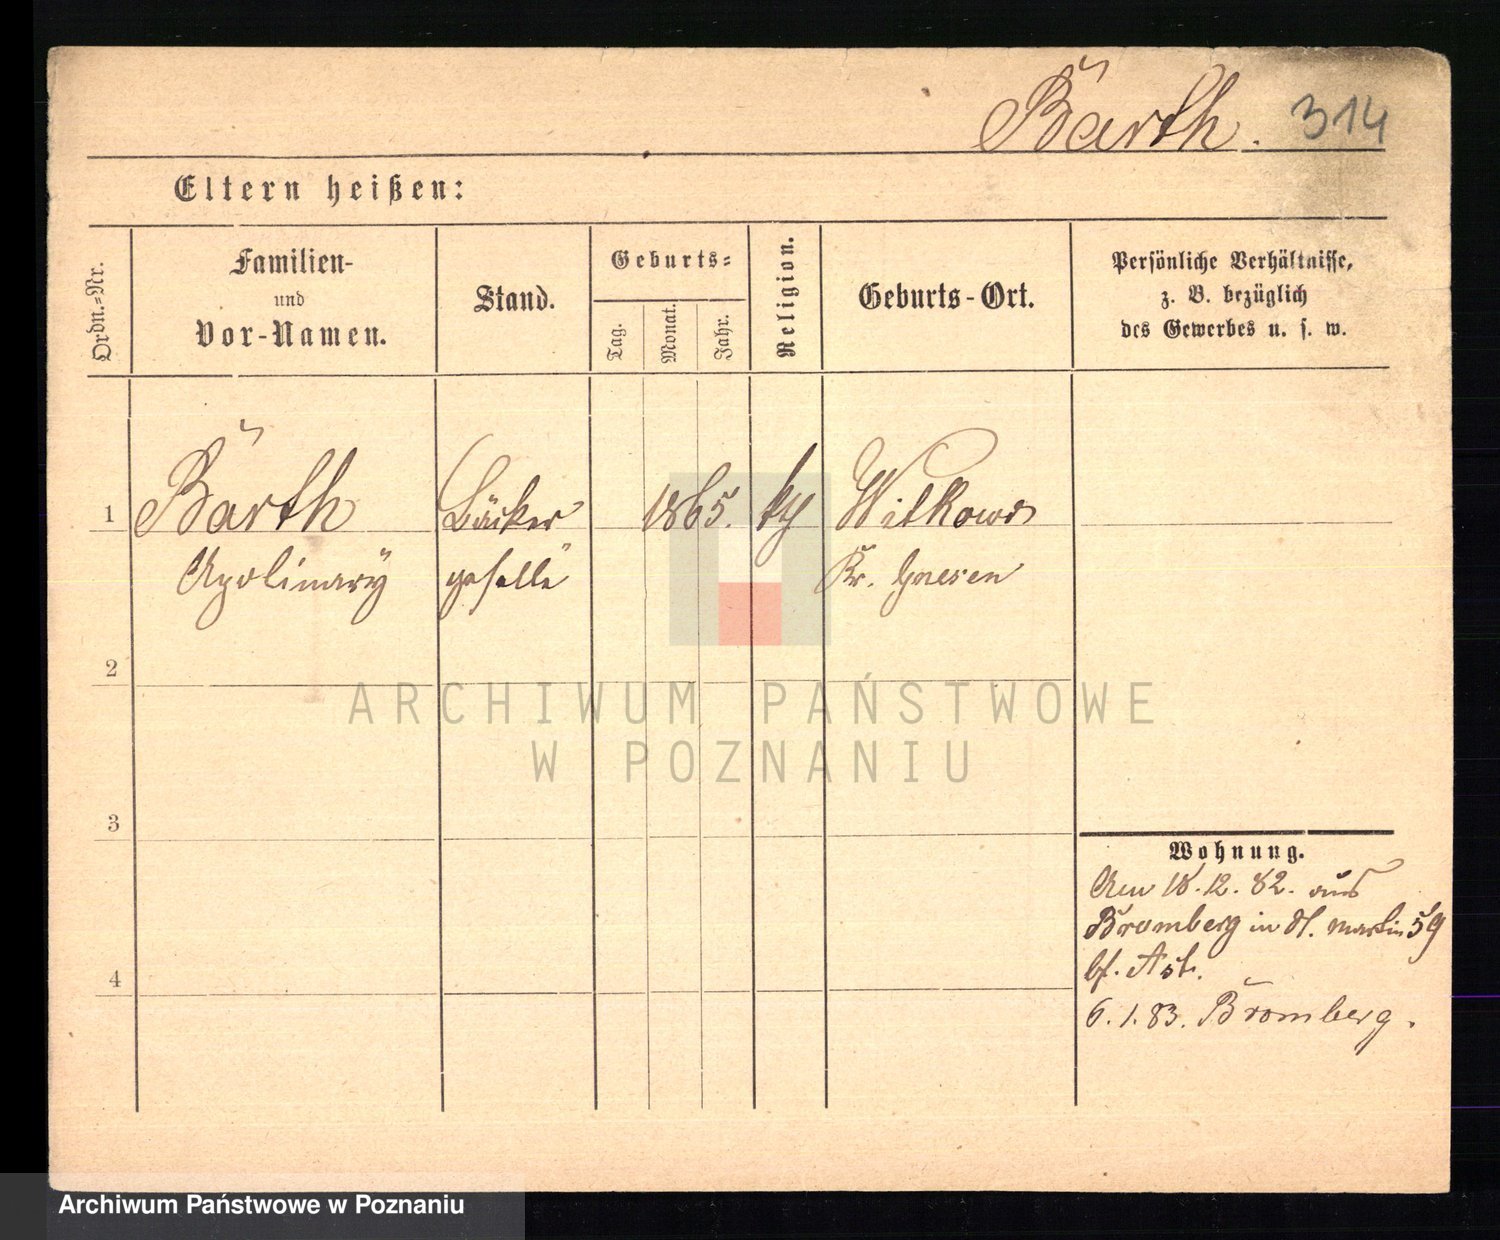 Barth. 314
Eltern heißen:
Ordn.-Nr.
Familien-
und
Vor-Namen.
Stand.
Geburts-
Tag.
Monat.
Jahr.
Religion.
Geburts-Ort.
Persönliche Verhältnisse,
z. B. bezüglich
des Gewerbes u. s. w.
1 Barth Bäcker 1865. Witkowo
Apolinary geselle Kr. Gnesen
2
3
4
Wohnung.
Am 18.12.82. aus
Bromberg in St. Martin 59
6.1.83. Bromberg.
ARCHIWUM PAŃSTWOWE
W POZNANIU
Archiwum Państwowe w Poznaniu